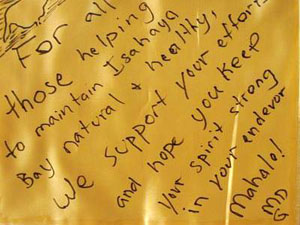 For all
those helping
to maintain Isahaya
Bay natural & healthy,
We support your efforts
and hope you keep
your spirit strong
in your endeavor
Mahalo!
MD
G